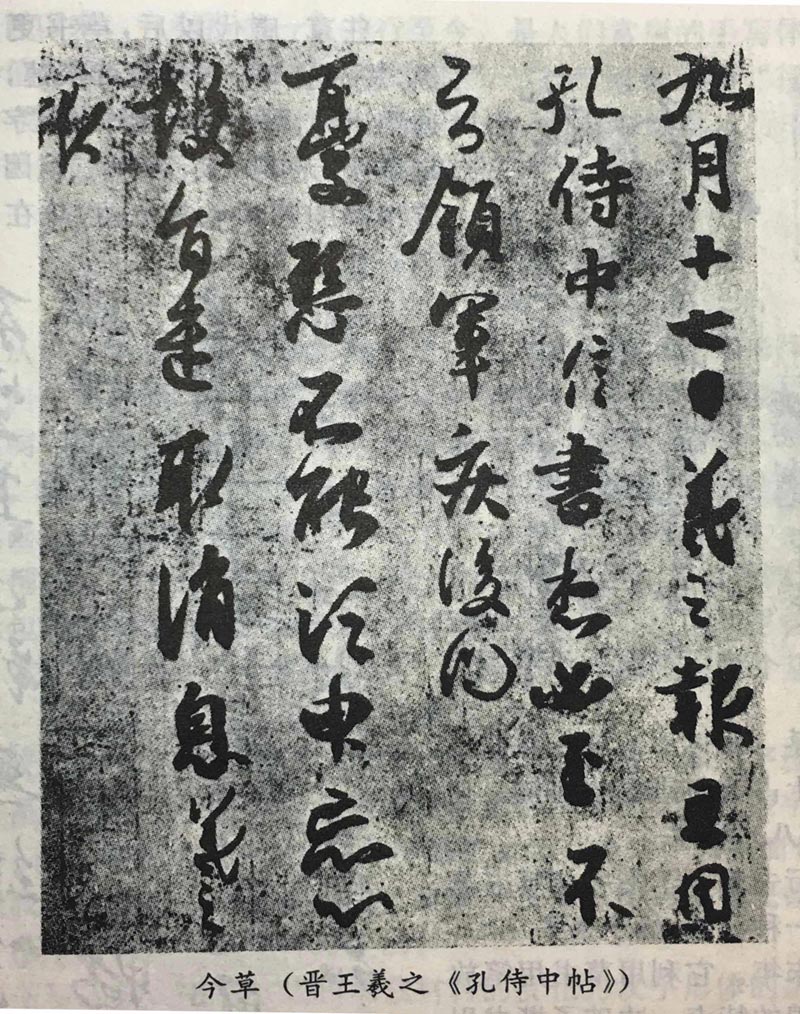 九月十七日羲之報且因
孔侍中信書想必至不
知領軍疾後問
憂懸不能須臾忘心
故旨遣取消息羲之
報
今草（晋王羲之《孔侍中帖》）